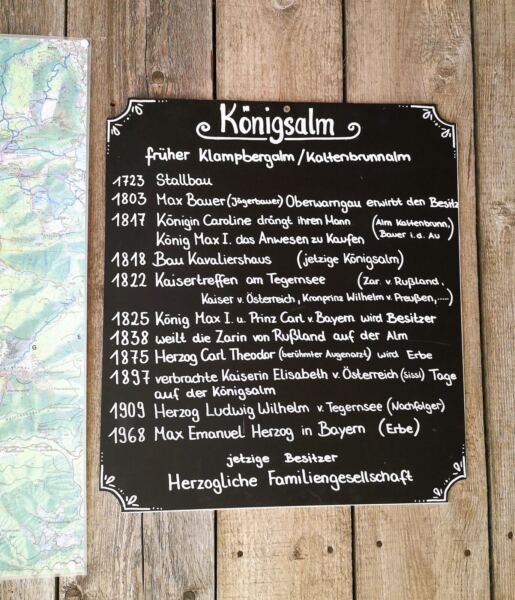 Königsalm
früher Klampbergalm/Kaltenbrunnalm
1723 Stallbau
1803 Max Bauer (Jägerbauer) Oberwarngau erwirbt den Besitz
1817 Königin Caroline drängt ihren Mann (Alm Kaltenbrunn,
König Max I. das Anwesen zu Kaufen Bauer i.d. Au)
1818 Bau Kavaliershaus (jetzige Königsalm)
1822 Kaisertreffen am Tegernsee (Zar v. Rußland,
Kaiser v. Österreich, Kronprinz Wilhelm v. Preußen,....)
1825 König Max I. u. Prinz Carl v. Bayern wird Besitzer
1838 weilt die Zarin von Rußland auf der Alm
1875 Herzog Carl Theodor (berühmter Augenarzt) wird Erbe
1897 verbrachte Kaiserin Elisabeth v. Österreich (Sissi) Tage
auf der Königsalm
1909 Herzog Ludwig Wilhelm v. Tegernsee (Nachfolger)
1968 Max Emanuel Herzog in Bayern (Erbe)
jetzige Besitzer
Herzogliche Familiengesellschaft